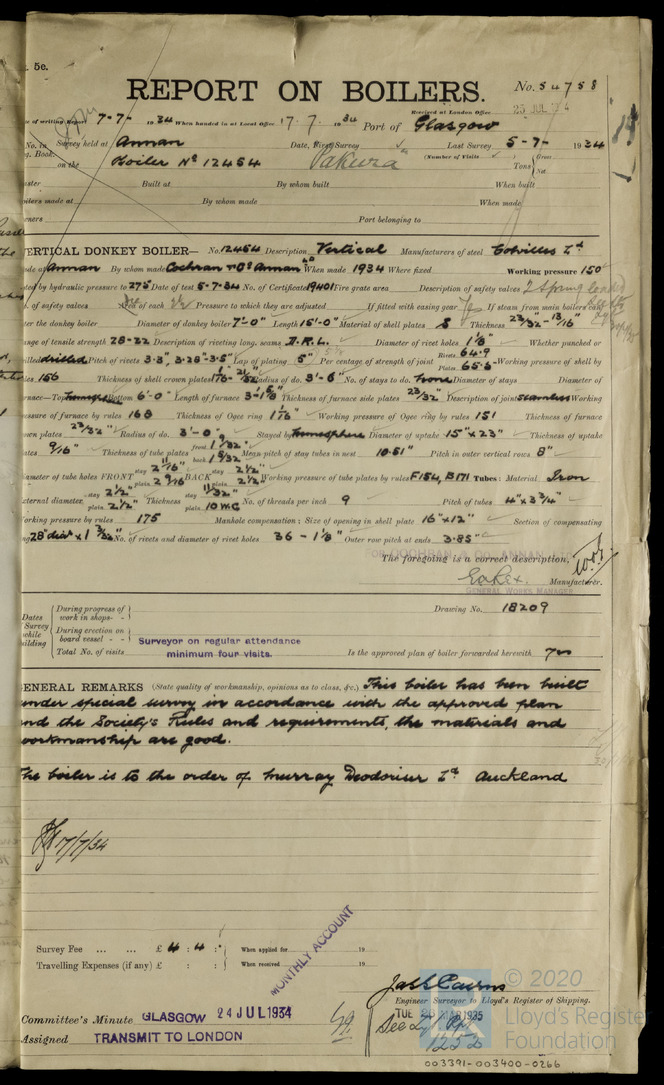 5c.
REPORT ON BOILERS.
No. 54758
Received at London Office
25 JUL
of writing Report 7-7- 1934 When handed in at Local Office 17.7. 1934 Port of Glasgow
No. in Survey held at Annan Date, First Survey Last Survey 5-7- 1934
g. Book. on the Boiler No 12454 Pakura (Number of Visits
Tons { Gross Net
ster Built at By whom built When built
ilers made at By whom made When made
ners Port belonging to
VERTICAL DONKEY BOILER— No. 12454 Description Vertical Manufacturers of steel Colvilles Ld
de at Annan By whom made Cochran & Co Annan Ld When made 1934 Where fixed Working pressure 150
ted by hydraulic pressure to 275 Date of test 5-7-34 No. of Certificate 19401 Fire grate area Description of safety valves 2 Spring loaded
o. of safety valves of each Pressure to which they are adjusted If fitted with easing gear If steam from main boilers
ter the donkey boiler Diameter of donkey boiler 7'-0" Length 15'-0" Material of shell plates S Thickness 23/32" - 13/16"
nge of tensile strength 28-32 Description of riveting long. seams D.R.L. Diameter of rivet holes 1 1/8" Whether punched or
rilled drilled Pitch of rivets 3.3", 3.28"-3.5" Lap of plating 5" Per centage of strength of joint Rivets 64.9 Plates 65.6 Working pressure of shell by
les 156 Thickness of shell crown plates Radius of do. 3'-6" No. of stays to do. None Diameter of stays Diameter of
rnace—Top Bottom 6'-0" Length of furnace 3'-1 5/8" Thickness of furnace side plates 23/32" Description of joint seamless Working
essure of furnace by rules 168 Thickness of Ogee ring 1 1/16" Working pressure of Ogee ring by rules 151 Thickness of furnace
own plates 23/32" Radius of do. 3'-0" Stayed by hemisphere Diameter of uptake 15" x 23" Thickness of uptake
ates 9/16" Thickness of tube plates front 1 9/32" back 1 9/32" Mean pitch of stay tubes in nest 10.51" Pitch in outer vertical rows 8"
iameter of tube holes FRONT stay 2 11/16" plain 2 9/16" BACK stay 2 1/2" plain 2 1/2" Working pressure of tube plates by rules F154, B171 Tubes: Material Iron
xternal diameter stay 2 1/2" plain 2 1/2" Thickness stay 11/32" plain 10 W.G No. of threads per inch 9 Pitch of tubes 4" x 3 3/4"
orking pressure by rules 175 Manhole compensation: Size of opening in shell plate 16" x 12" Section of compensating
ng 28" dia x 1 3/32" No. of rivets and diameter of rivet holes 36 - 1 1/8" Outer row pitch at ends 3.85"
The foregoing is a correct description,
Manufacturer.
GENERAL WORKS MANAGER
Dates Survey while building
During progress of work in shops - - Drawing No. 18209
During erection on board vessel - - Surveyor on regular attendance
Total No. of visits minimum four visits. Is the approved plan of boiler forwarded herewith
GENERAL REMARKS (State quality of workmanship, opinions as to class, &c.) This boiler has been built
under special survey in accordance with the approved plan
and the Society's Rules and requirements, the materials and
workmanship are good.
The boiler is to the order of Murray Deodoriser Ld. Auckland
17/7/34
Survey Fee ... ... £ 4 : 4 : When applied for 19
Travelling Expenses (if any) £ : : When received 19
MONTHLY ACCOUNT
Jas S Cairns
Engineer Surveyor to Lloyd's Register of Shipping.
Committee's Minute GLASGOW 24 JUL 1934
TUE 26 MAR 1935
Assigned TRANSMIT TO LONDON
See
1252
© 2020
Lloyd's Register
Foundation
003391-003400-0266